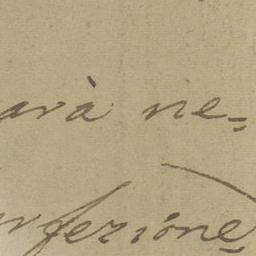 arà ne=
erfezione=